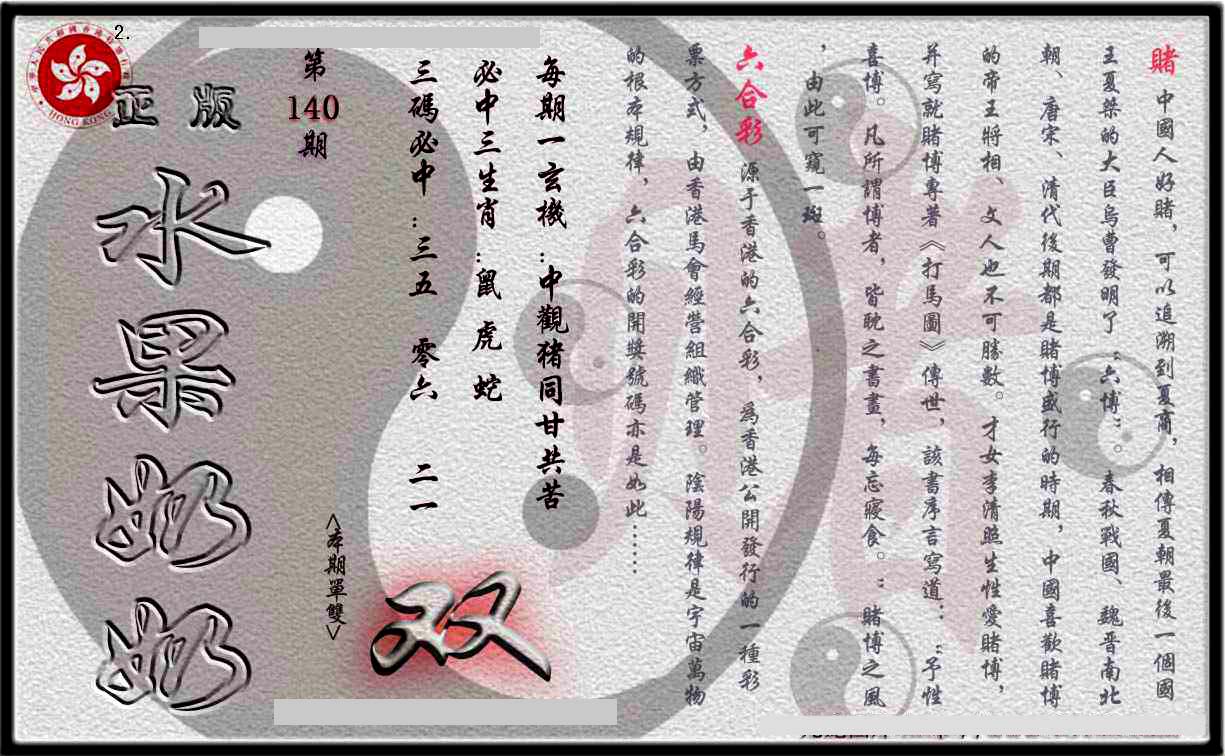 賭 中國人好賭，可以追溯到夏商，相傳夏朝最後一個國
王夏桀的大臣烏曹發明了“六博”。春秋戰國、魏晋南北
朝、唐宋、清代後期都是賭博盛行的時期，中國喜歡賭博
的帝王將相、文人也不可勝數。才女李清照生性愛賭博，
并寫就賭博專著《打馬圖》傳世，該書序言寫道：“予性
喜博。凡所謂博者，皆耽之書畫，每忘寢食。”賭博之風
，由此可窺一斑。
六合彩 源于香港的六合彩，為香港公開發行的一種彩
票方式，由香港馬會經營組織管理。陰陽規律是宇宙萬物
的根本規律，六合彩的開獎號碼亦是如此……
每期一玄機：中觀猪同甘共苦
必中三生肖：鼠 虎 蛇
三碼必中：三五 零六 二一
<本期單雙>
双
第
140
期
2.
正版
水果奶奶
HONG KONG